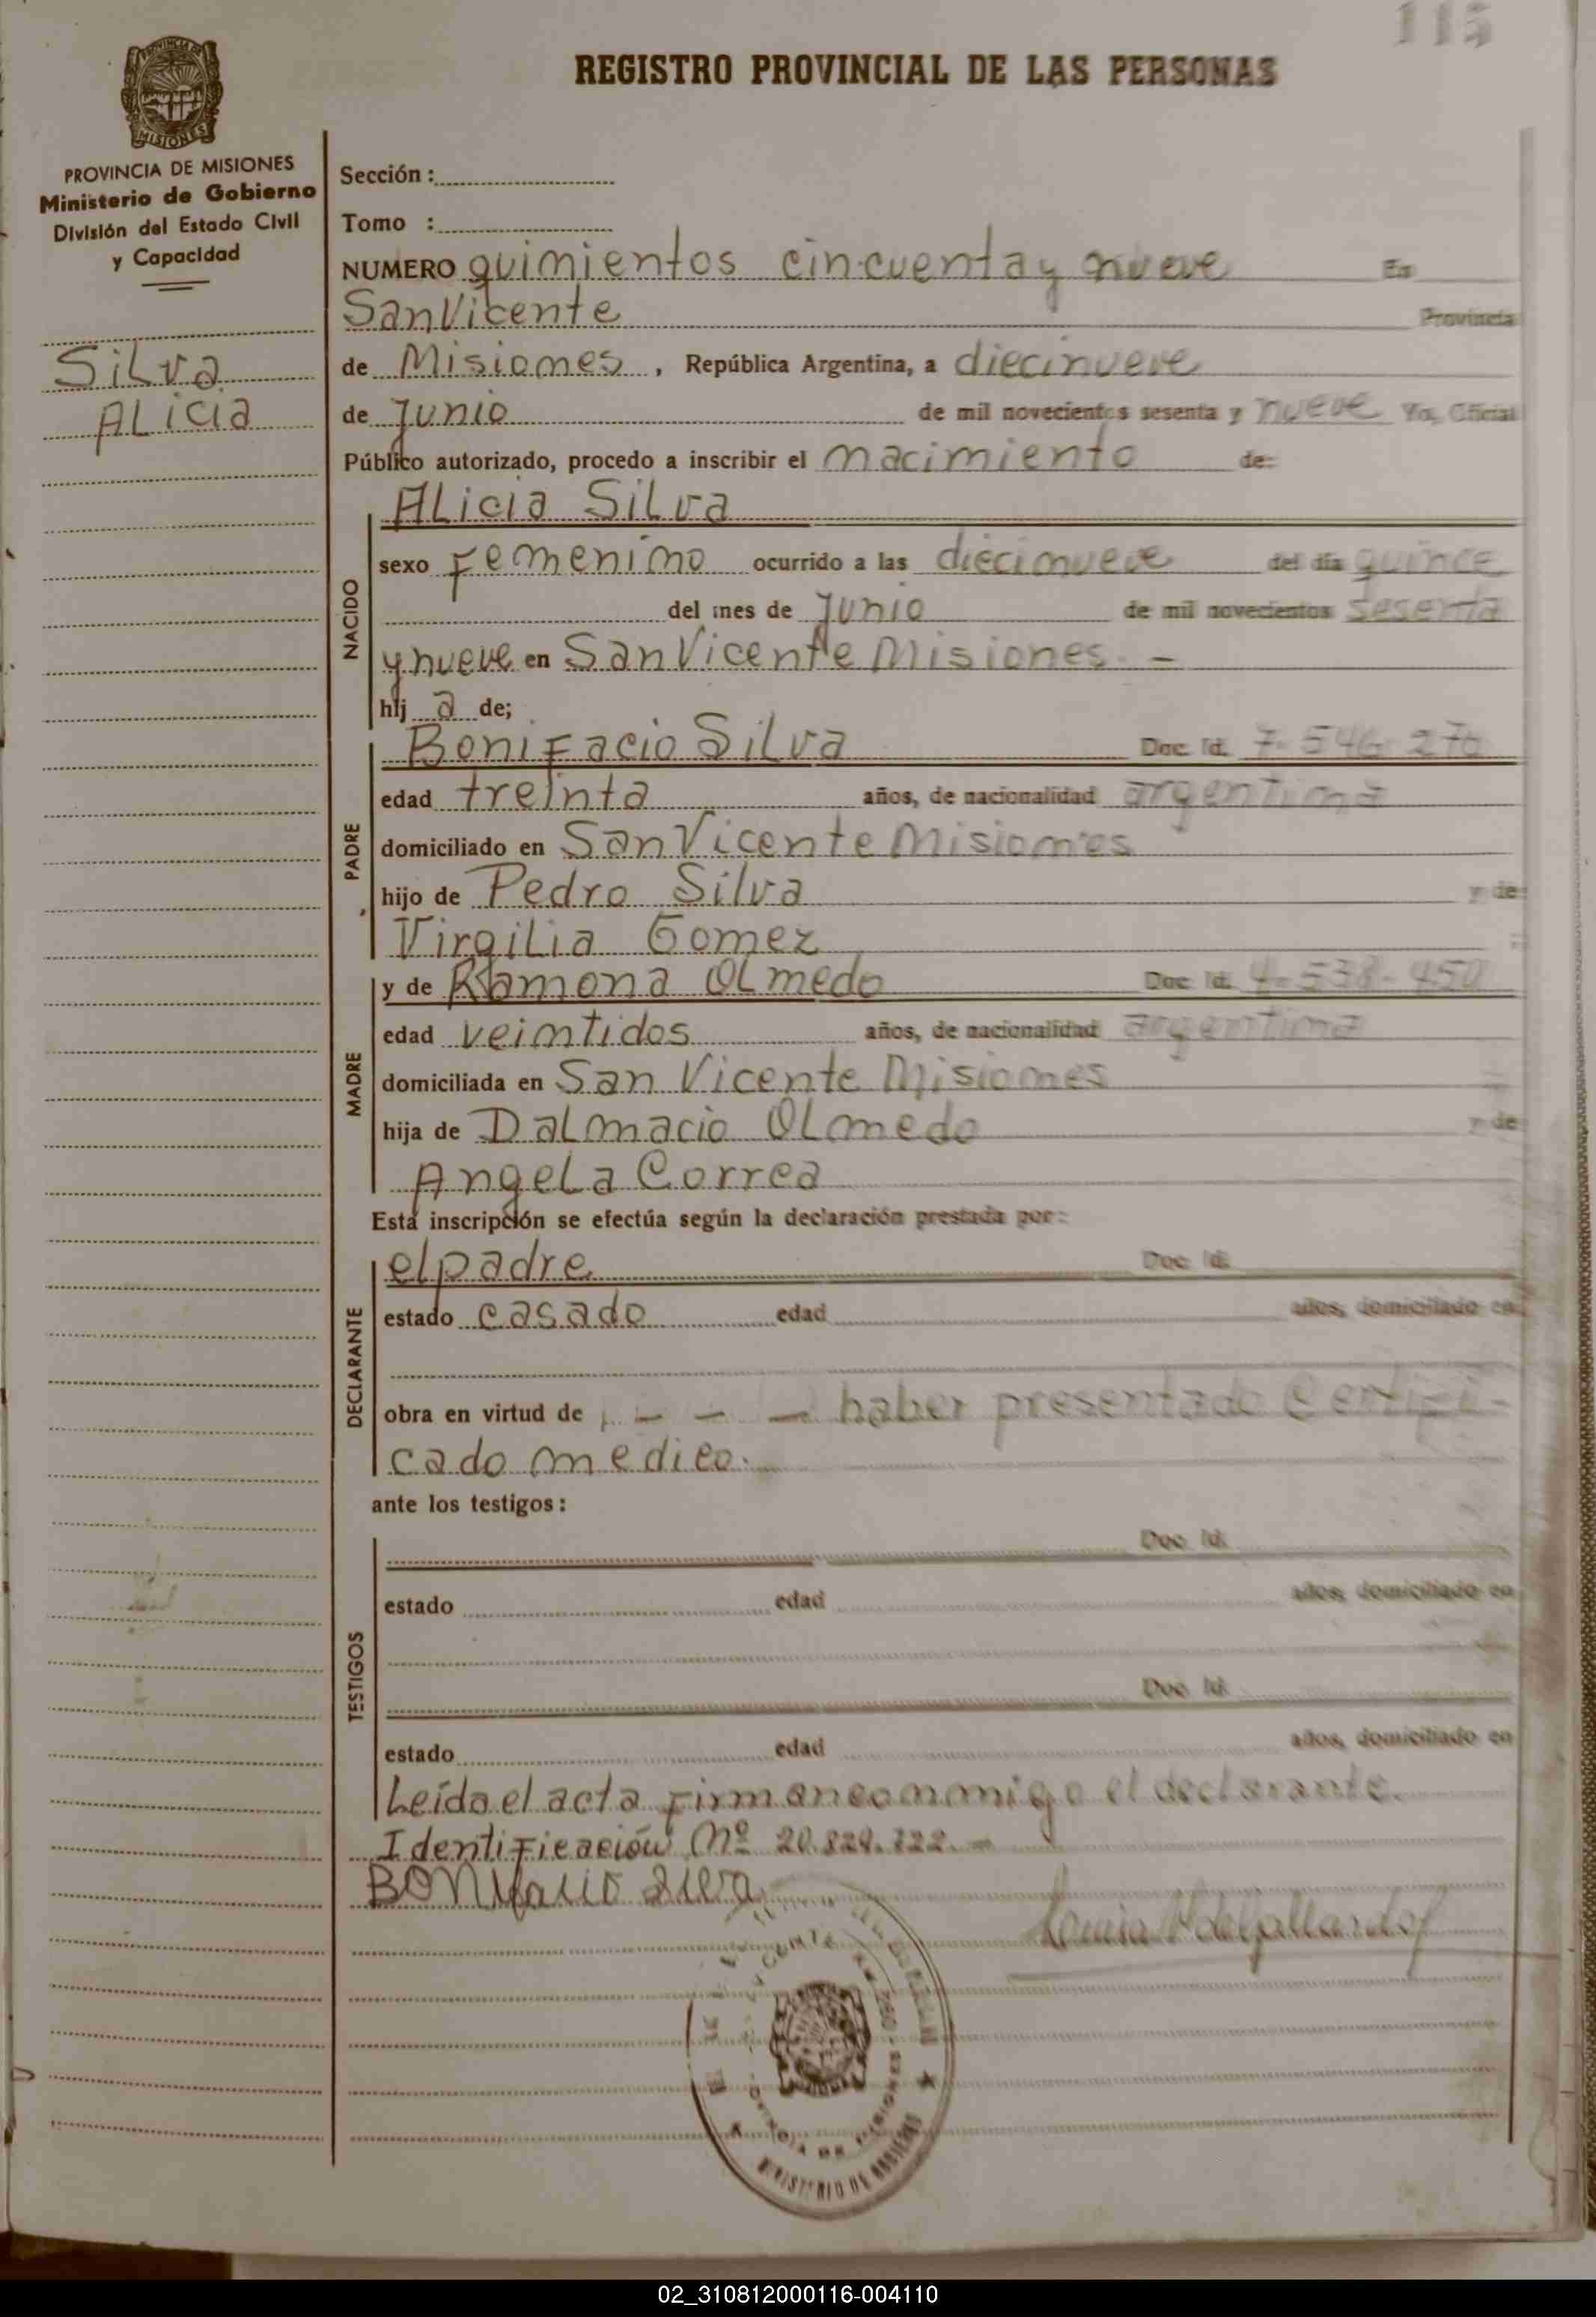 115
REGISTRO PROVINCIAL DE LAS PERSONAS
MISIONES
PROVINCIA DE MISIONES
Ministerio de Gobierno
División del Estado Civil
y Capacidad
Silva
Alicia
Sección :
Tomo :
NUMERO quimientos cincuenta y nueve En
San Vicente Provincia
de Misiones , República Argentina, a diecinueve
de Junio de mil novecientos sesenta y nueve Yo, Oficial
Público autorizado, procedo a inscribir el nacimiento de:
NACIDO
Alicia Silva
sexo Femenino ocurrido a las diecinueve del día quince
del mes de Junio de mil novecientos sesenta
y nueve en San Vicente Misiones. -
hij a de;
PADRE
Bonifacio Silva Doc. Id. 7-546-270
edad treinta años, de nacionalidad argentina
domiciliado en San Vicente Misiones
hijo de Pedro Silva y de
Virgilia Gomez
MADRE
y de Ramona Olmedo Doc. Id. 4-538-450
edad veintidos años, de nacionalidad argentina
domiciliada en San Vicente Misiones
hija de Dalmacio Olmedo y de
Angela Correa
Esta inscripción se efectúa según la declaración prestada por:
DECLARANTE
el padre Doc. Id.
estado casado edad años, domiciliado en
obra en virtud de - - - haber presentado Certifi-
cado medico.
ante los testigos:
TESTIGOS
Doc. Id.
estado edad años, domiciliado en
Doc. Id.
estado edad años, domiciliado en
Leída el acta firman conmigo el declarante.
Identificación Nº 20.824.722. -
Bonifacio Silva
de Gallardo
MINISTERIO DE GOBIERNO
02_310812000116-004110